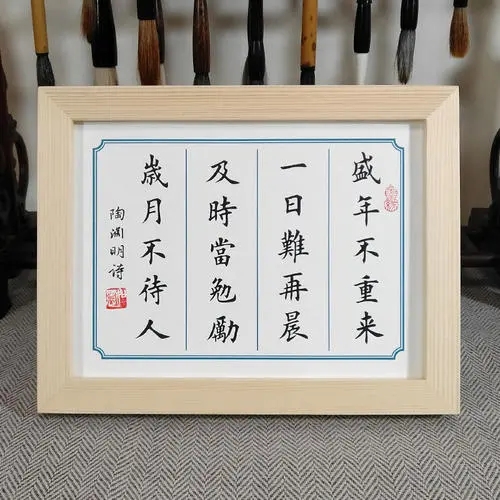 盛年不重来
一日難再晨
及時當勉勵
歲月不待人
陶渊明诗